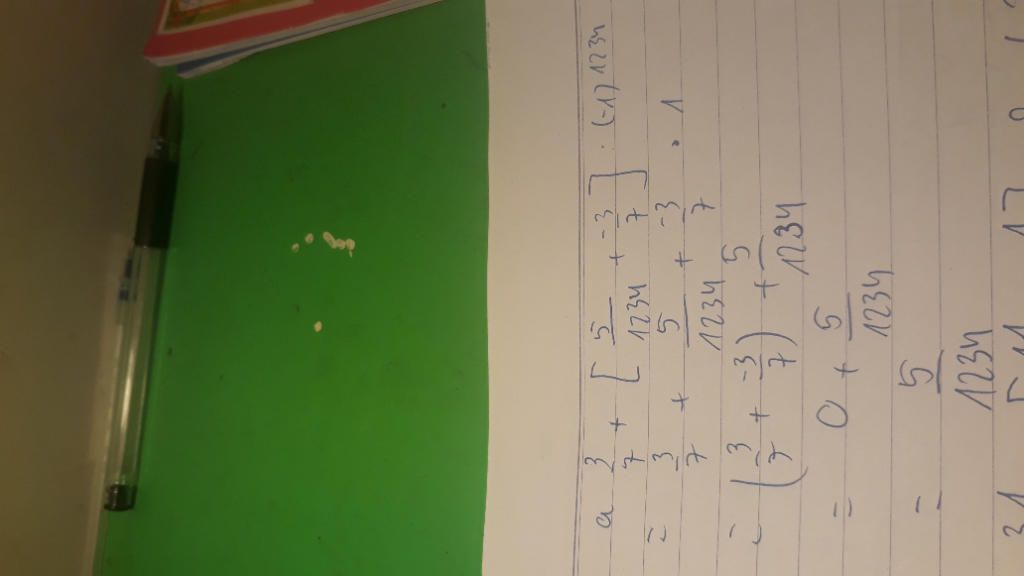 a 3/7 + [5/1234 + -3/7] . (-1)1234
= 3/7 + 5/1234 + -3/7 . 1
= (3/7 + -3/7) + 5/1234
= 0 + 5/1234
= 5/1234